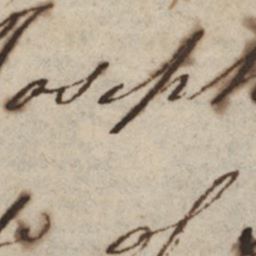 Joseph
of